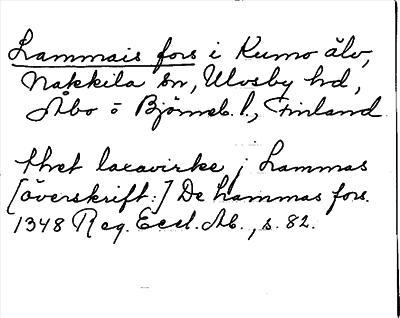 Lammais fors i Kumo älv,
Nakkila sn, Ulvsby hd,
Åbo o Björneb. l., Finland.
thet laxavirke j Lammas
[överskrift:] De Lammas fors.
1348 Reg. Eccl. Ab., s. 82.